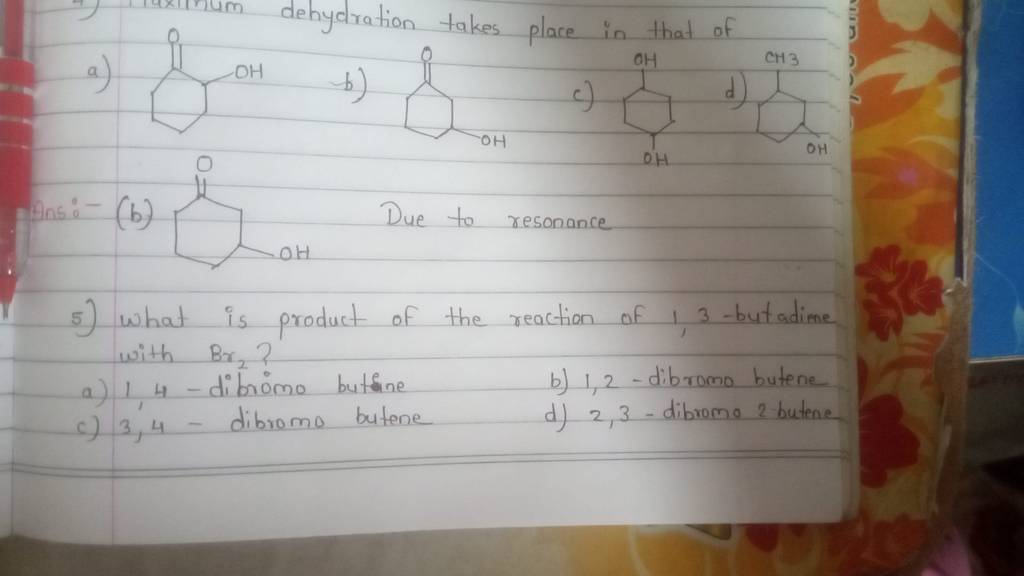 4) Maximum dehydration takes place in that of
a) O OH b) O OH c) OH OH d) CH3 OH
Ans :- (b) O OH Due to resonance
5) What is product of the reaction of 1,3-butadiene
with Br2 ?
a) 1,4 - dibromo butene b) 1,2 - dibromo butene
c) 3,4 - dibromo butene d) 2,3 - dibromo 2 butene